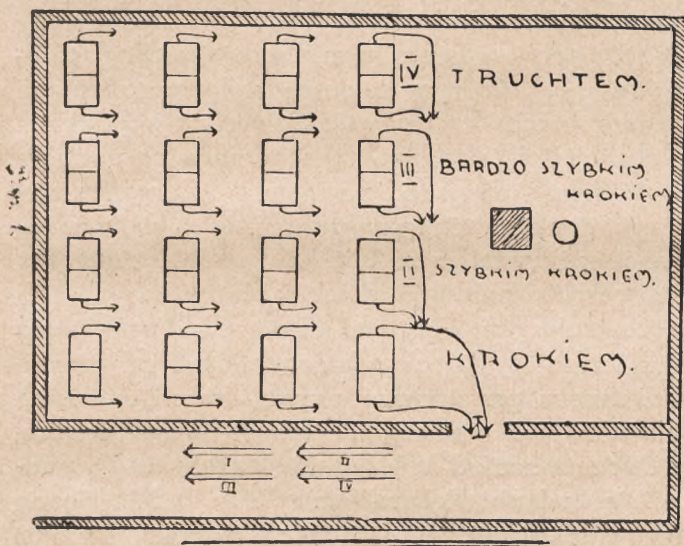 IV
TRUCHTEM.
III
BARDZO SZYBKIM
KROKIEM
II
SZYBKIM KROKIEM.
KROKIEM.
I
I
II
III
IV